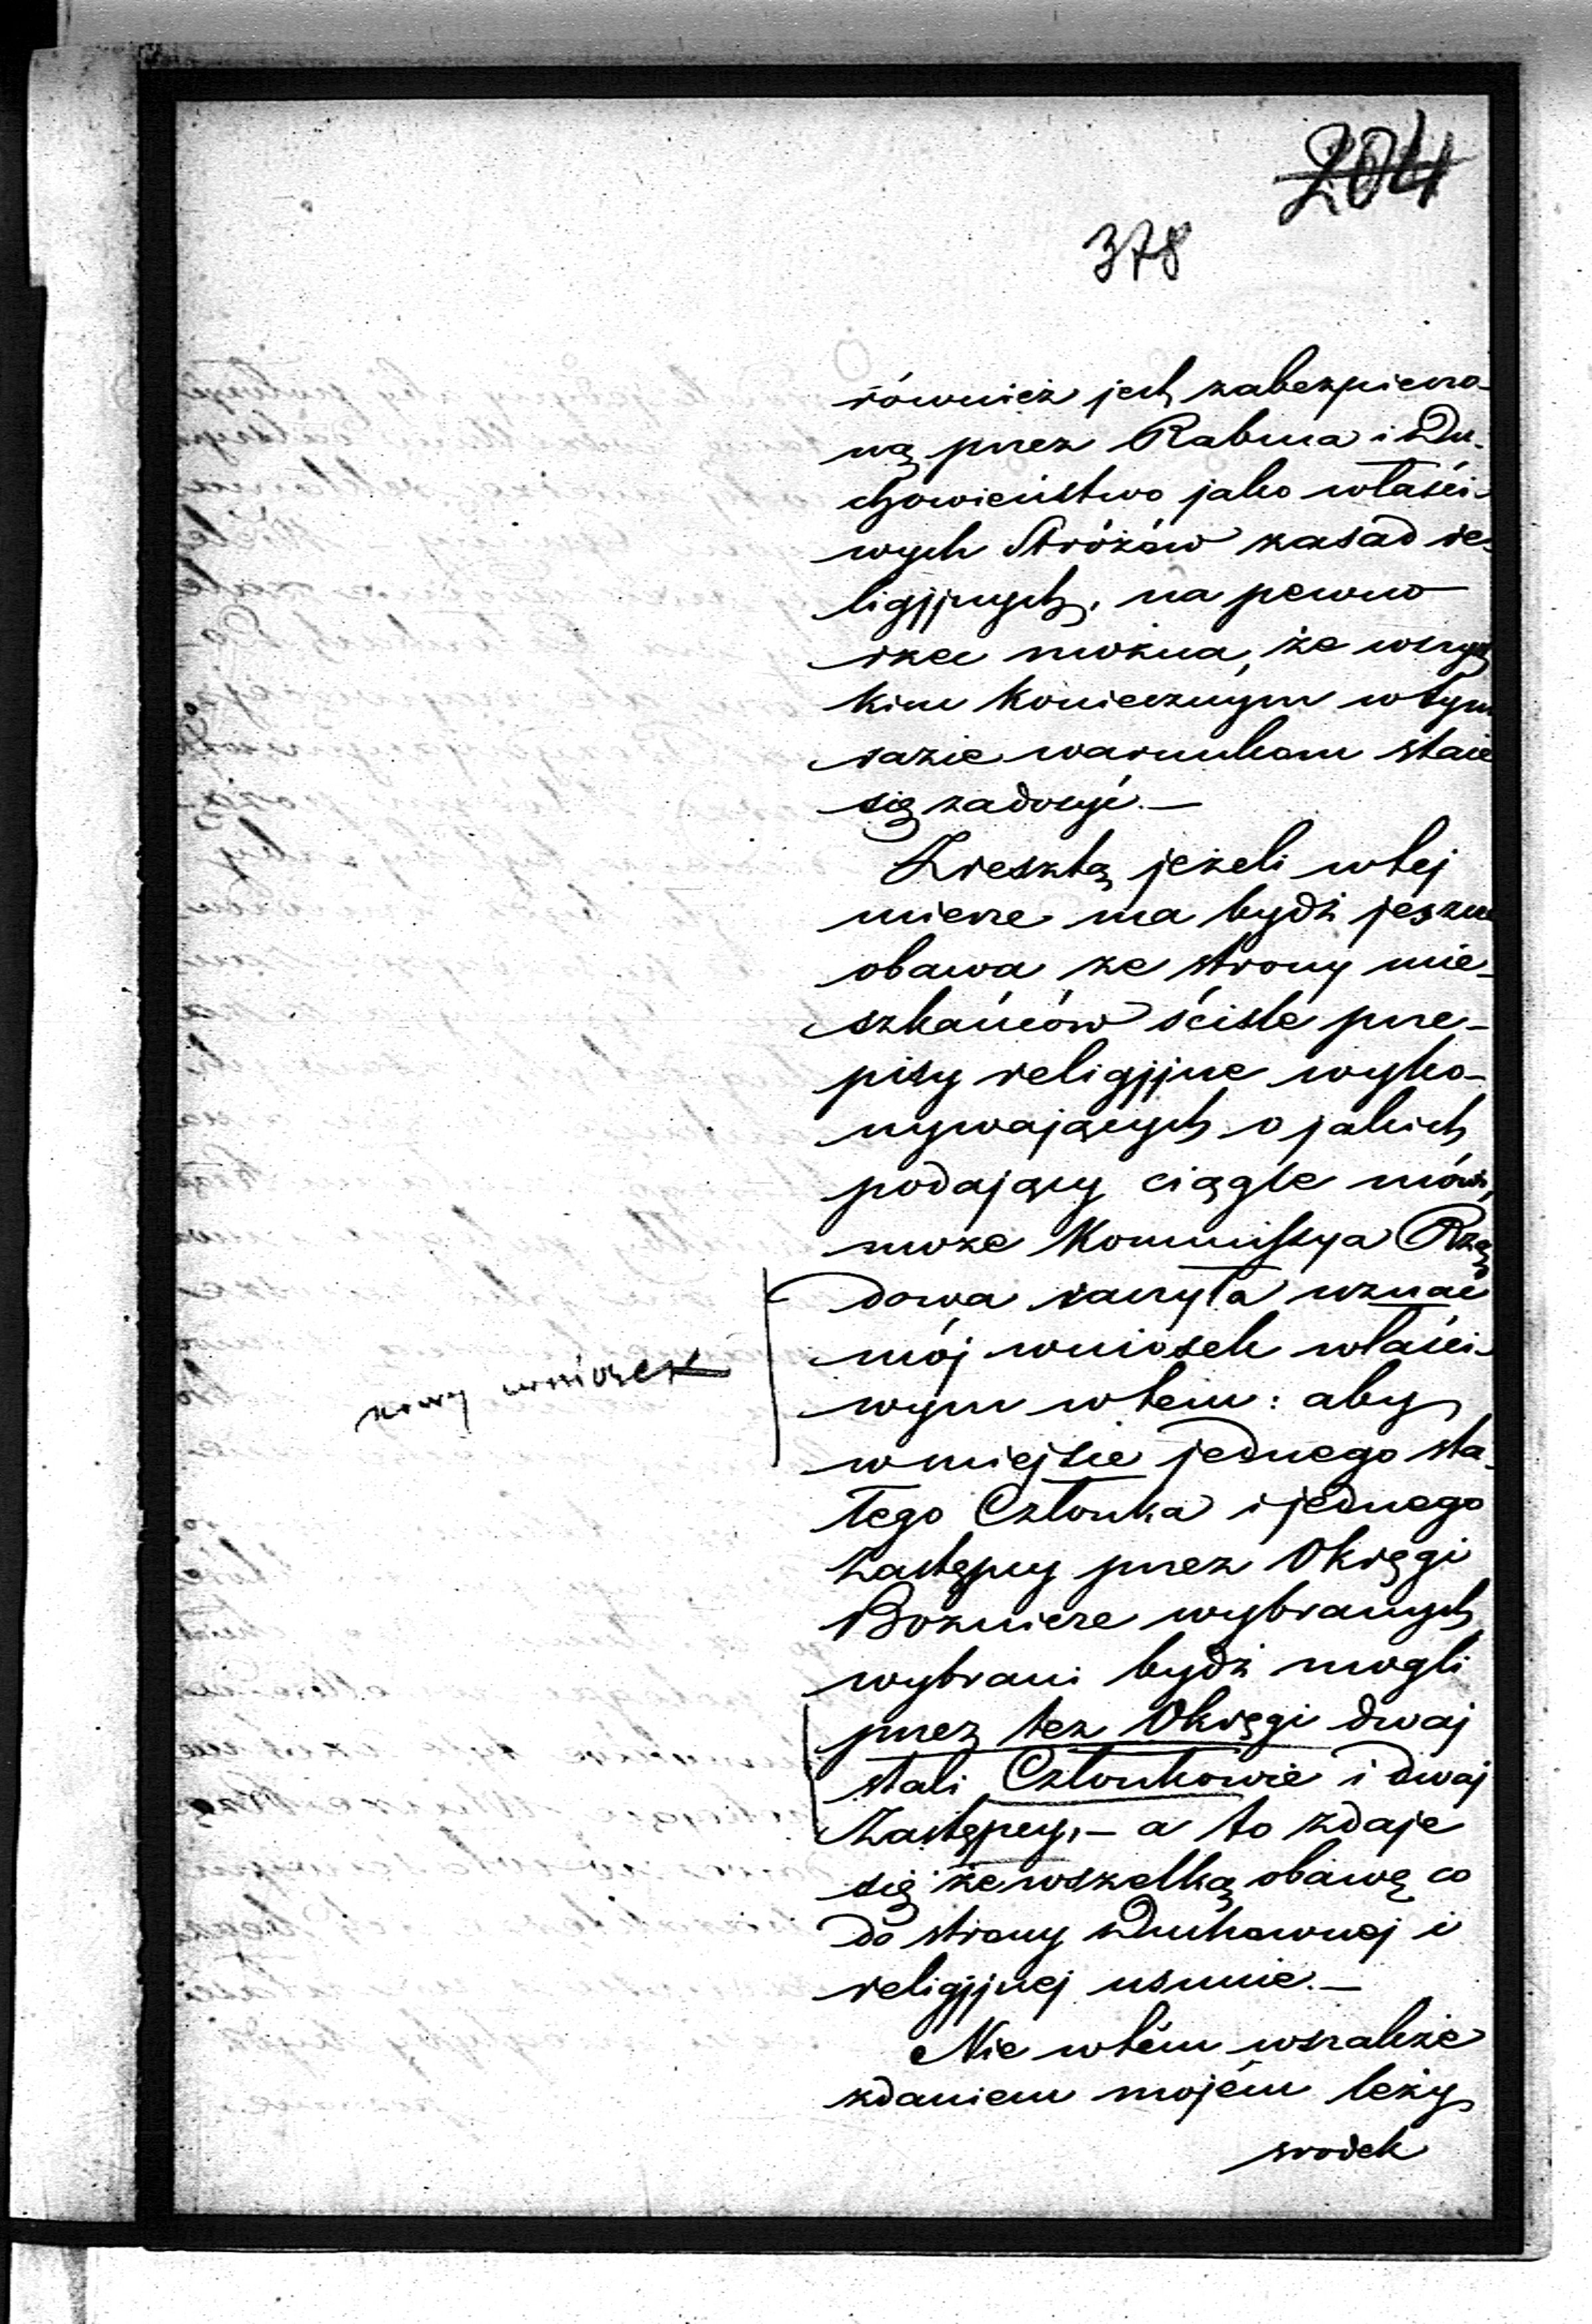 204
378
również jest zabezpieczo-
ną przez Rabina i Du-
chowieństwo jako właści-
wych Stróżów zasad re-
ligijnych, na pewno
rzec można, że wszyst
kim koniecznym w tym
razie warunkom staie
się zadosyć.—
Zresztą jeżeli w tej
mierze ma bydź jeszcze
obawa ze strony mie-
szkańców ściśle prze-
pisy religijne wyko-
nywających o jakich
podający ciągle mówi,
może Kommissya Rzą
dowa raczyła uznać
mój wniosek właści-
wym w tem: aby
w miejsce jednego sta-
łego Członka i jednego
Zastępcy przez Okręgi
Bożnicze wybranych
wybrani bydź mogli
przez też Okręgi dwaj
stali Członkowie i dwaj
Zastępcy,— a to zdaje
się że wszelką obawę co
do strony Duchownej i
religijnej usunie.—
Nie w tém wszakże
zdaniem mojém leży
srodek
nowy wniosek